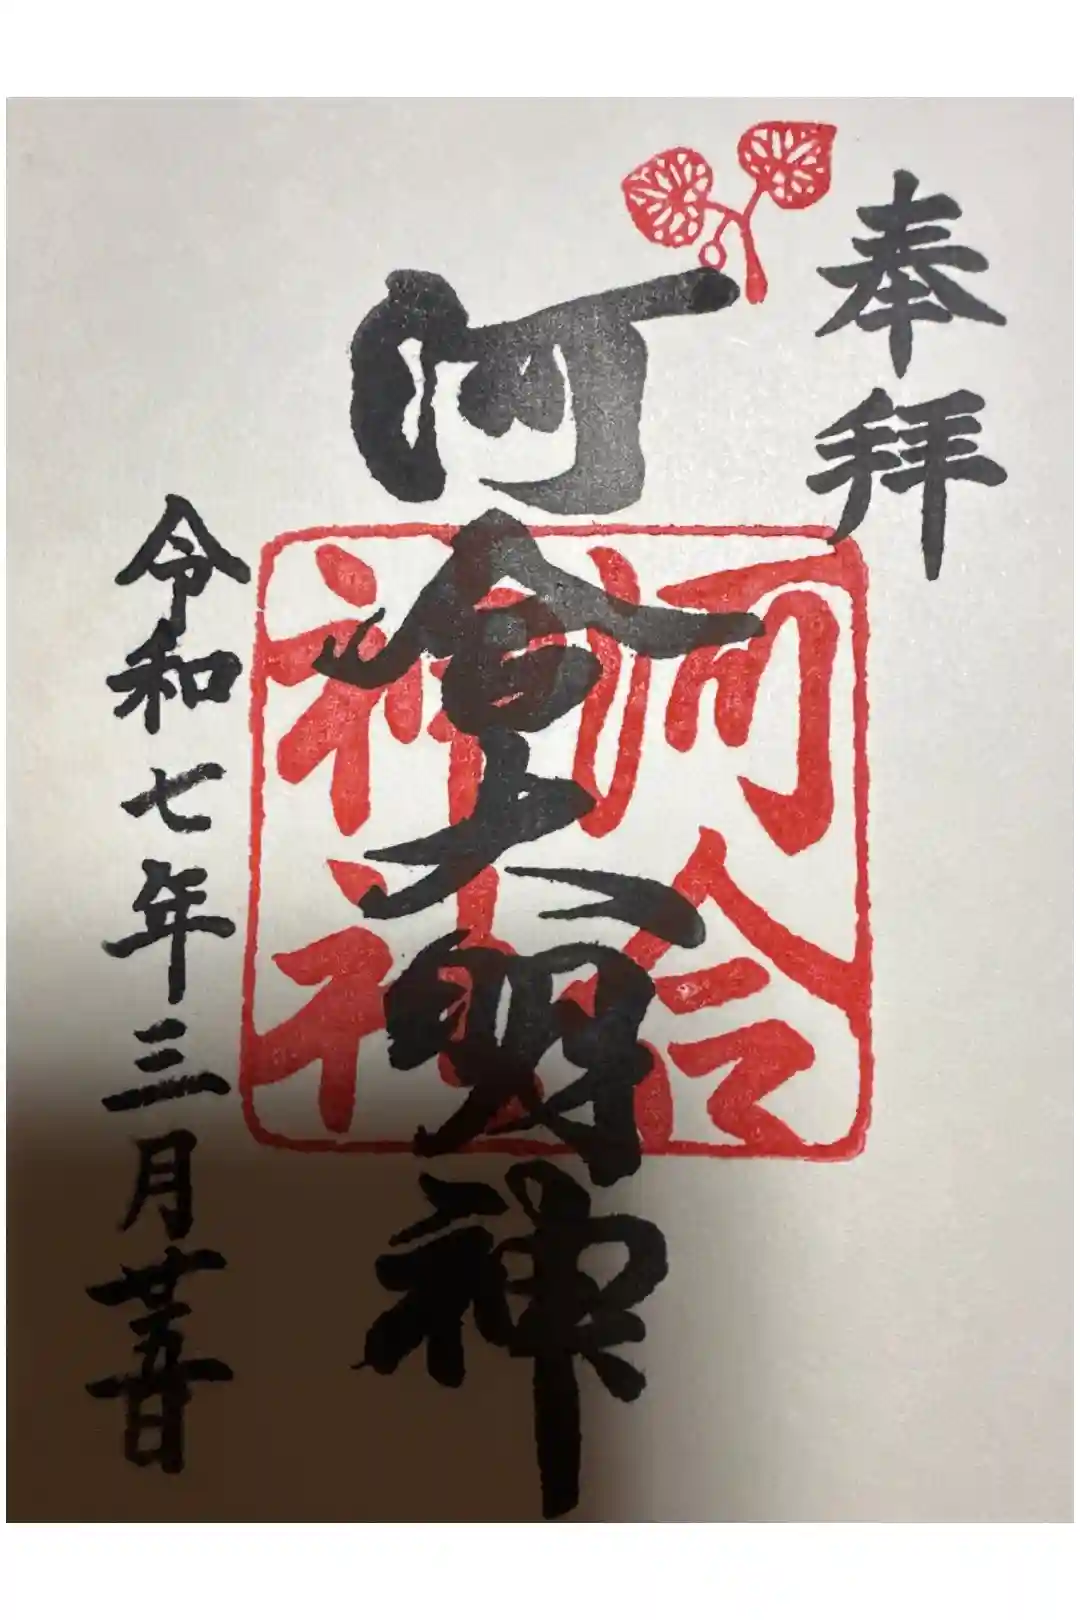 奉拝
河合大明神
河合神社
令和七年三月廿五日